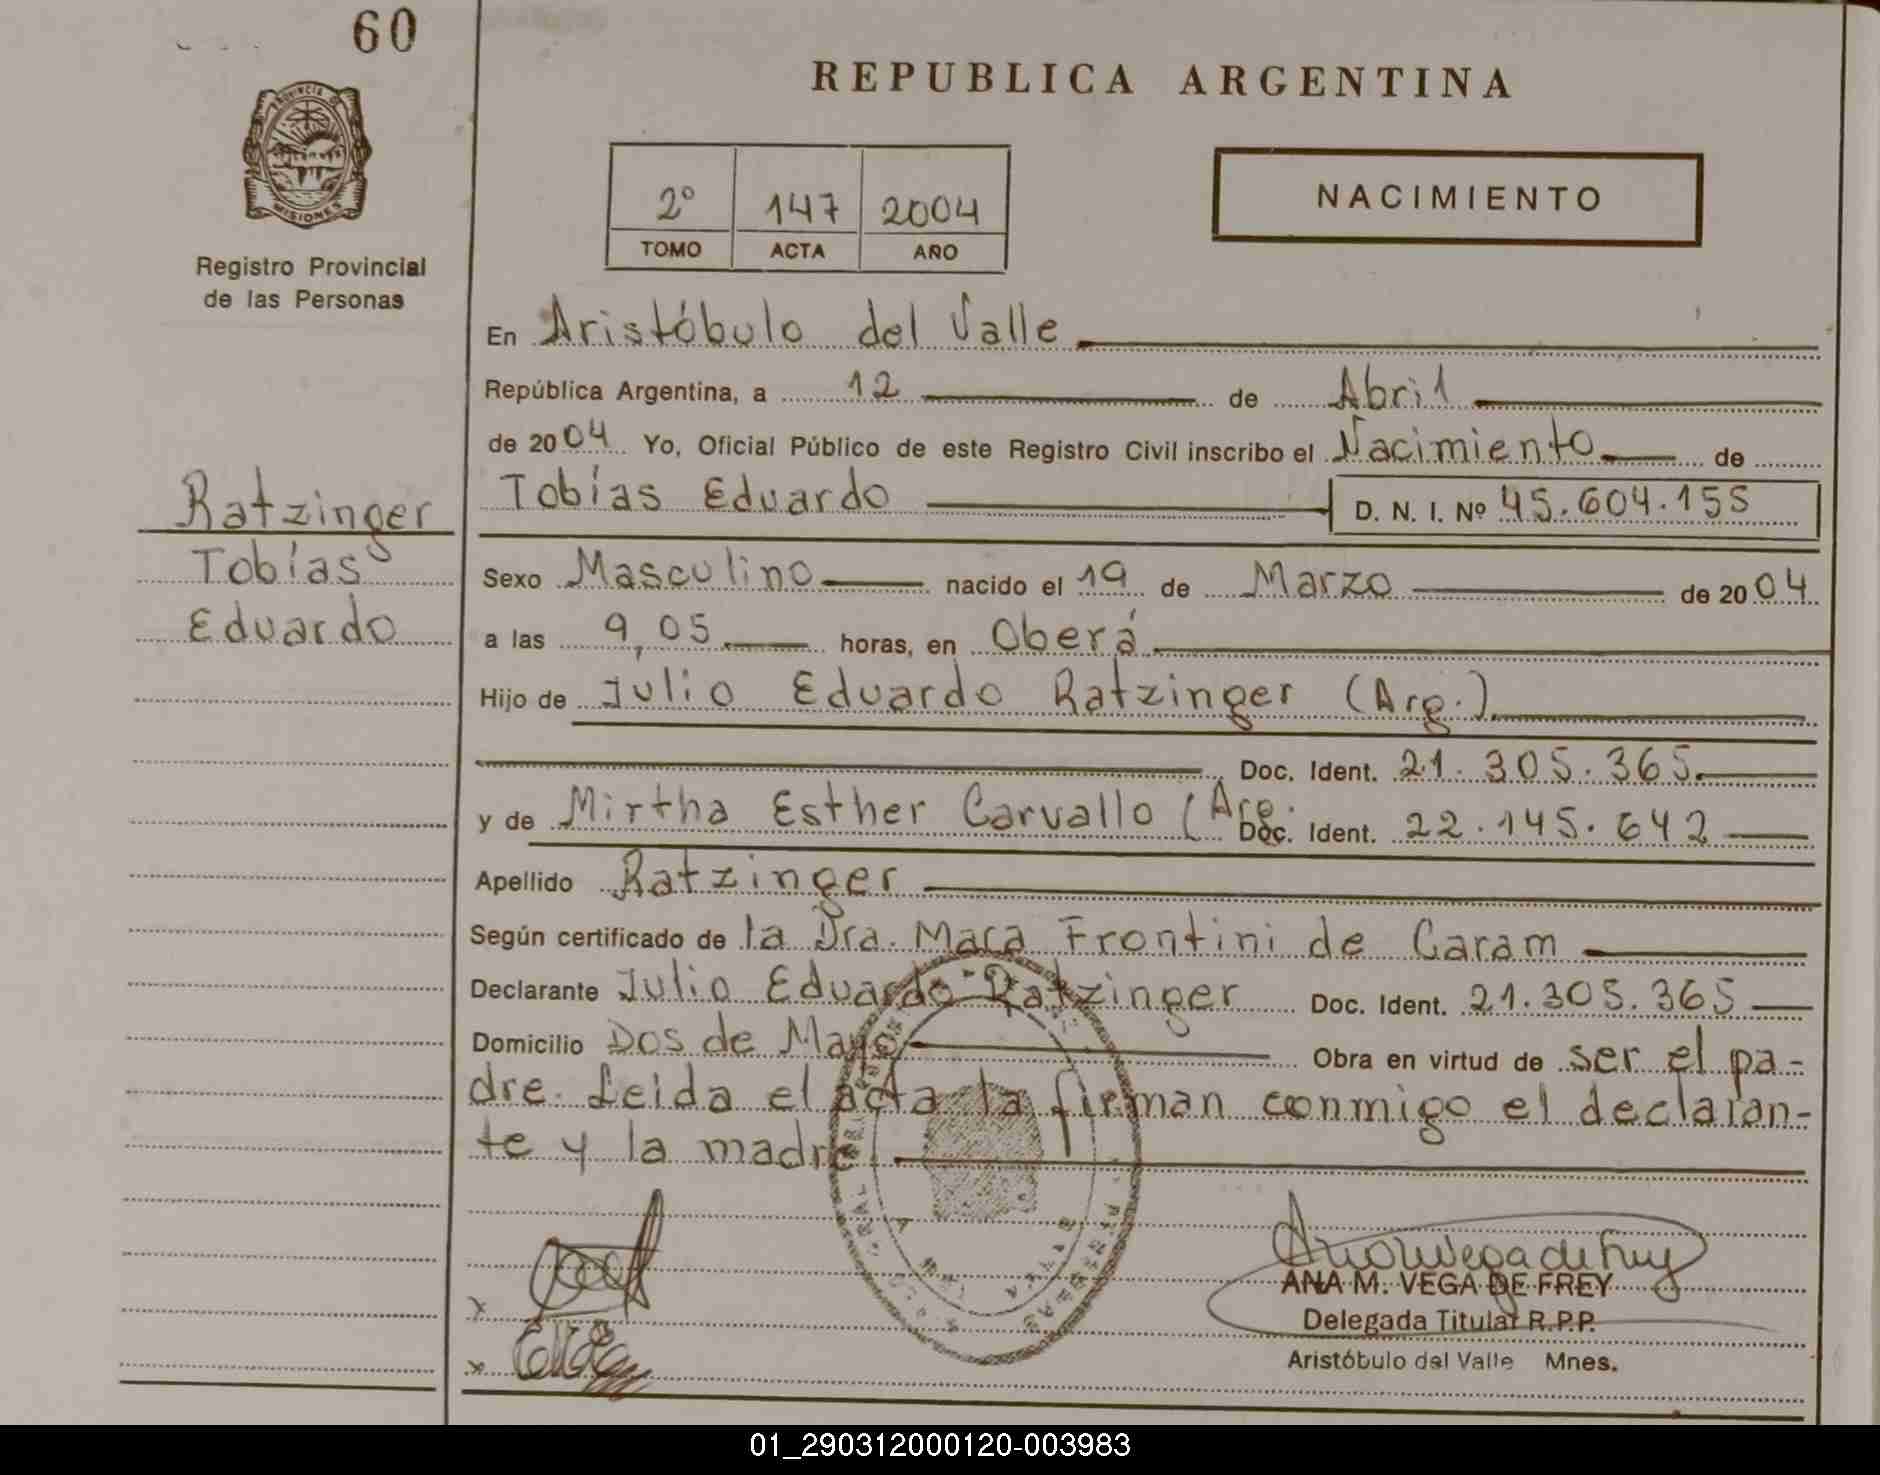 60
PROVINCIA DE
MISIONES
Registro Provincial
de las Personas
REPUBLICA ARGENTINA
2º 147 2004
TOMO ACTA AÑO
NACIMIENTO
En Aristóbulo del Valle
República Argentina, a 12 de Abril
de 2004 Yo, Oficial Público de este Registro Civil inscribo el Nacimiento de
Tobías Eduardo D. N. I. Nº 45.604.155
Ratzinger
Tobías
Eduardo
Sexo Masculino nacido el 19 de Marzo de 2004
a las 9,05 horas, en Oberá
Hijo de Julio Eduardo Ratzinger (Arg.)
Doc. Ident. 21.305.365
y de Mirtha Esther Carvallo (Arg. Doc. Ident. 22.145.642
Apellido Ratzinger
Según certificado de la Dra. Mara Frontini de Caram
Declarante Julio Eduardo Ratzinger Doc. Ident. 21.305.365
Domicilio Dos de Mayo Obra en virtud de ser el pa-
dre. Leida el acta la firman conmigo el declaran-
te y la madre
x
x
ANA M. VEGA DE FREY
Delegada Titular R.P.P.
Aristóbulo del Valle Mnes.
01_290312000120-003983